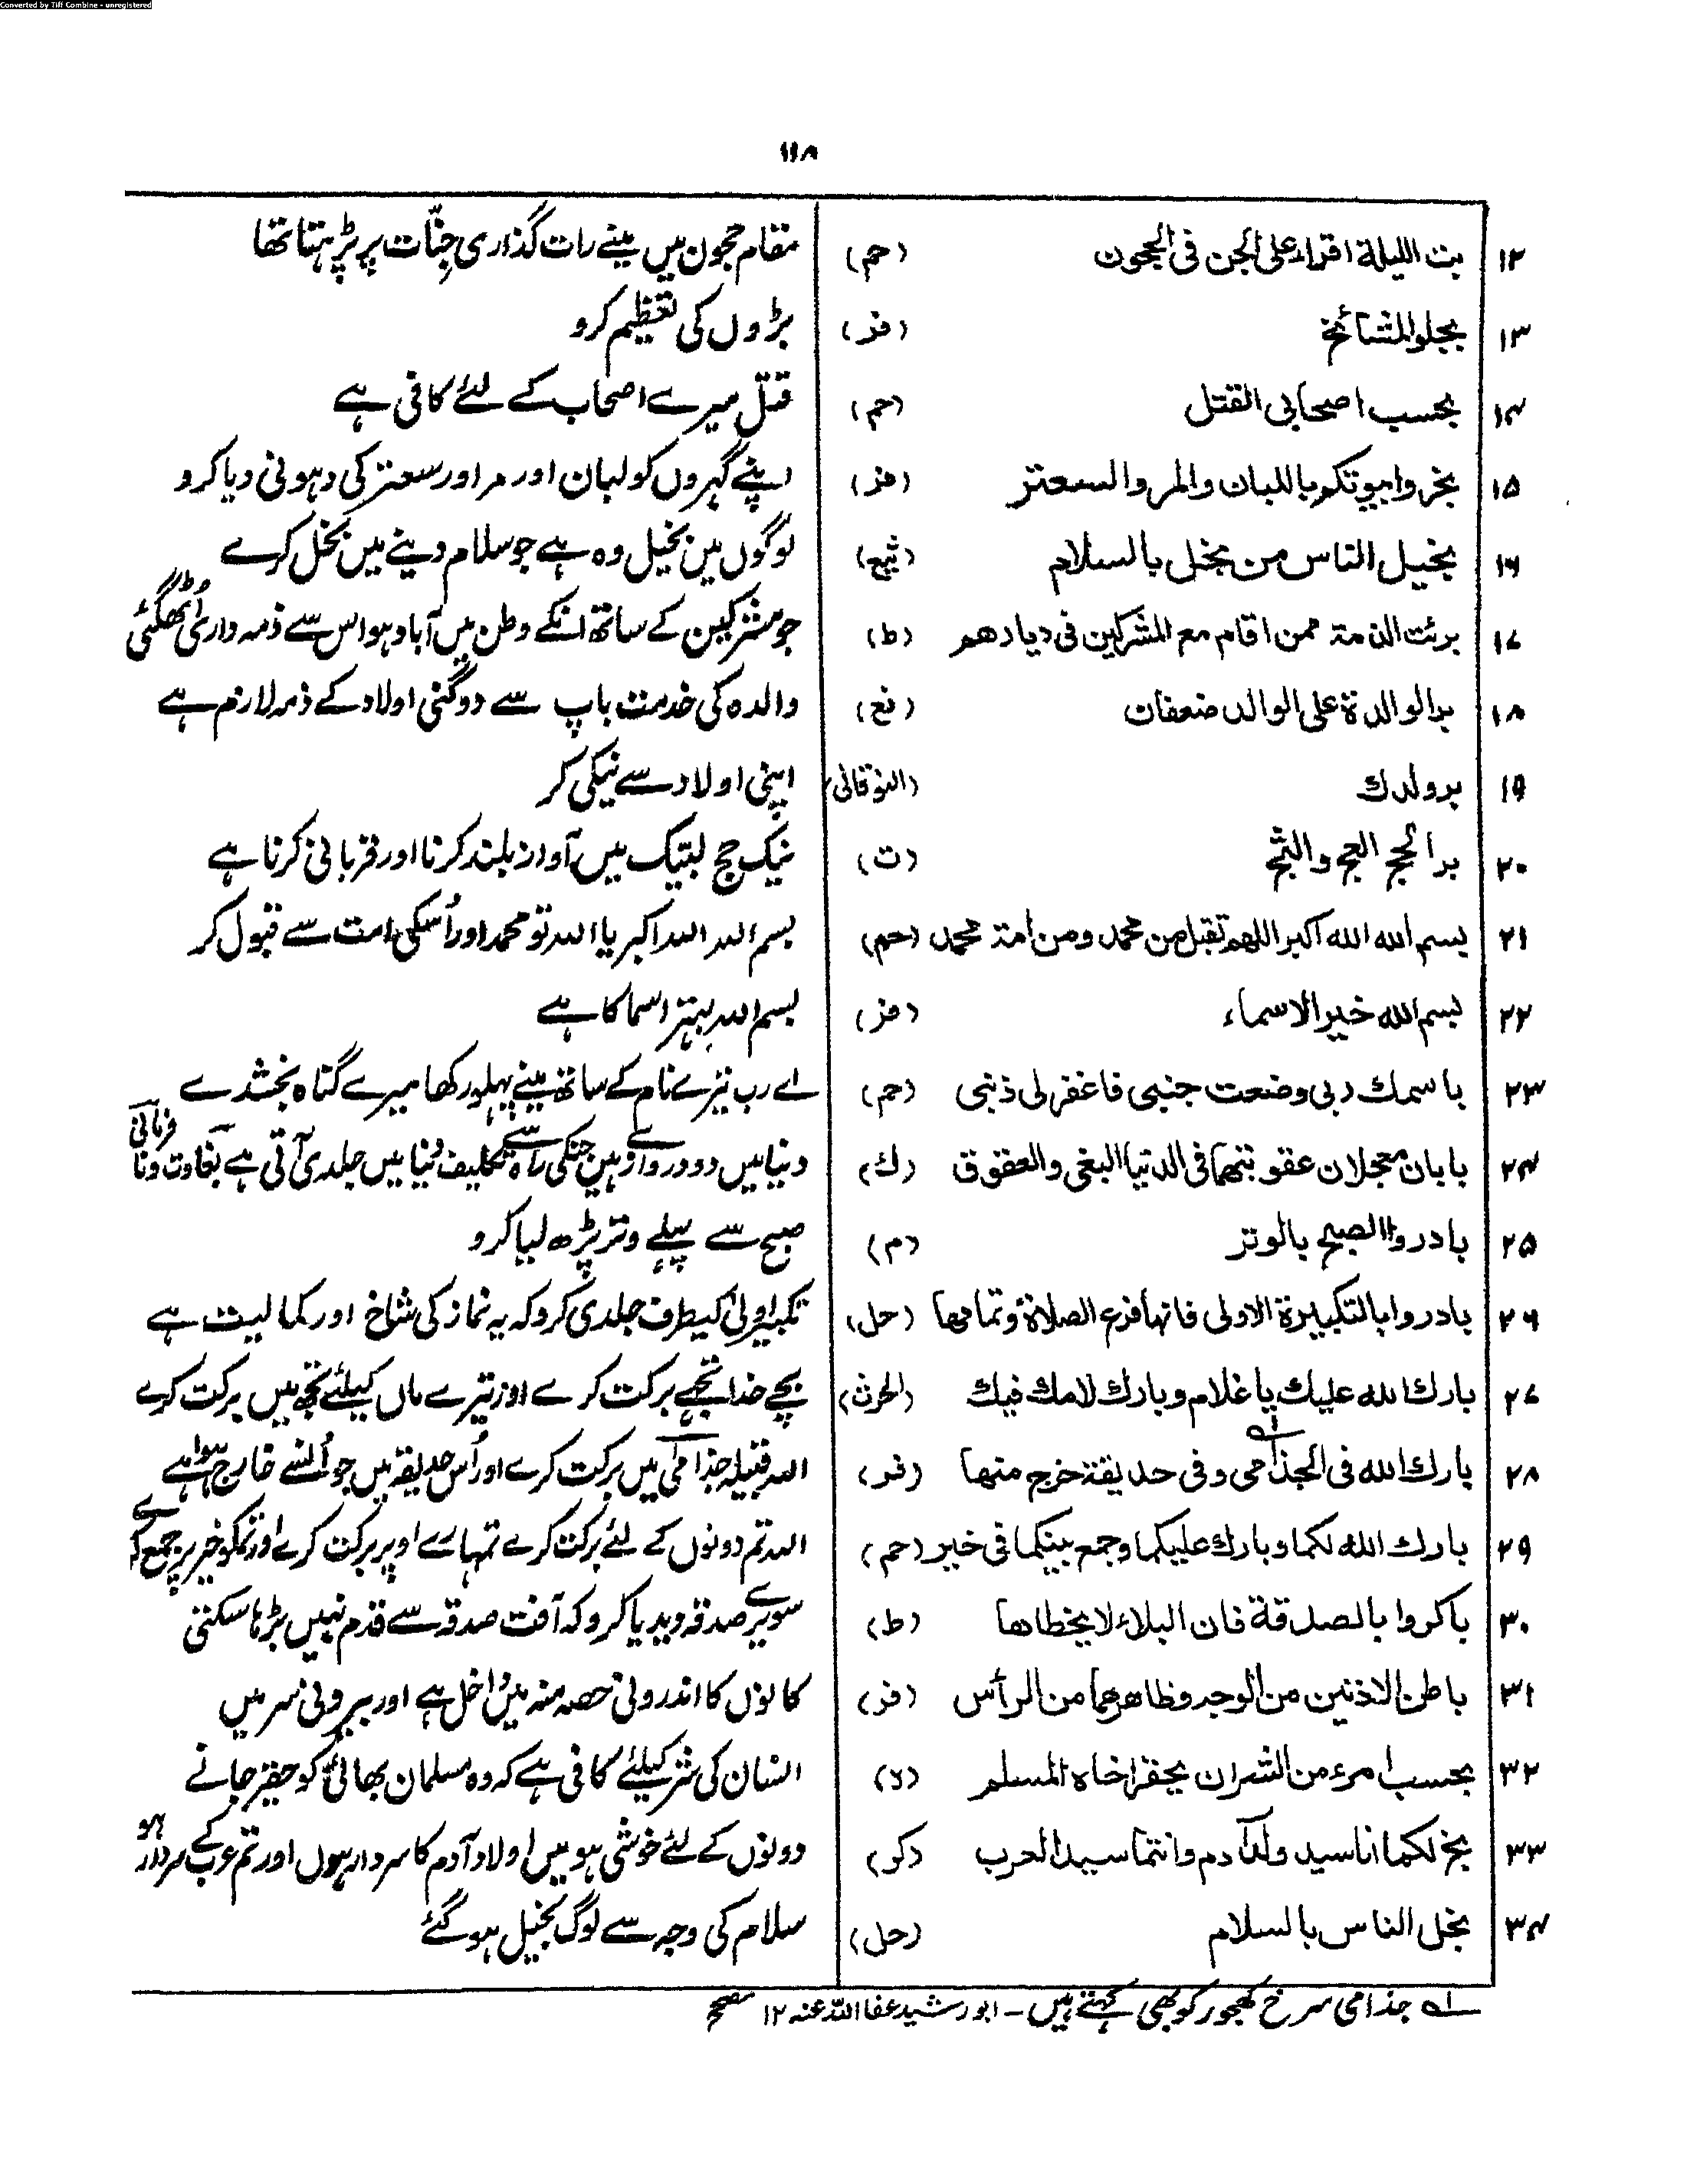 Converted by Tiff Combine - unregistered
۱۱۸
۱۲ بت الليلة اقراء على الجن فى الحجون (حم) مقام حجون میں مینے رات گذاری جنّات پر پڑہتا تھا
۱۳ بجلوا المشائخ (فر) بڑوں کی تعظیم کرو
۱۴ بحسب اصحابى القتل (حم) قتل میرے اصحاب کے لئے کافی ہے
۱۵ بخروا بيوتكم باللبان والمر والسعتر (فر) اپنے گہروں کو لبان اور مر اور سعتر کی دہونی دیا کرو
۱۶ بخيل الناس من بخل بالسلام (ثیع) لوگوں میں بخیل وہ ہے جو سلام دینے میں بخل کرے
۱۷ برئت الذمة ممن اقام مع المشركين فى ديارهم (ط) جو مشرکین کے ساتھ انکے وطن میں آباد ہو اس سے ذمہ داری اُٹھ گئی
۱۸ بر الوالدة على الوالد ضعفان (فع) والدہ کی خدمت باپ سے دوگنی اولاد کے ذمہ لازم ہے
۱۹ بر ولدك (النوقانی) اپنی اولاد سے نیکی کر
۲۰ بر الحج العج والثج (ت) نیک حج لبیک میں آواز بلند کرنا اور قربانی کرنا ہے
۲۱ بسم الله الله اكبر اللهم تقبل من محمد ومن امة محمد (حم) بسم اللہ اللہ اکبر یا اللہ تو محمد اور اُسکی امت سے قبول کر
۲۲ بسم الله خير الاسماء (فر) بسم اللہ بہتر اسما کا ہے
۲۳ باسمك ربى وضعت جنبى فاغفر لى ذنبى (حم) اے رب تیرے نام کے ساتھ مینے پہلو رکھا میرے گناہ بخشدے
۲۴ بابان معجلان عقوبتهما فى الدنيا البغى والعقوق (ك) دنیا میں دو دروازے ہیں جنکی راہ سے تکلیف دُنیا میں جلدی آتی ہے بغاوت و نافرمانی
۲۵ بادروا الصبح بالوتر (م) صبح سے پہلے وتر پڑھ لیا کرو
۲۶ بادروا بالتكبيرة الاولى فانها فرع الصلاة وتمامها (حل) تکبیر اولیٰ کیطرف جلدی کرو کہ یہ نماز کی شاخ اور کمالیت ہے
۲۷ بارك الله عليك يا غلام وبارك لامك فيك (الحرث) بچے خدا تجھے برکت کرے اور تیرے ماں کیلئے تجھ میں برکت کرے
۲۸ بارك الله فى الجذامى وفى حديقة خرج منها (فر) اللہ قبیلہ جذامی میں برکت کرے اور اُس حدیقہ میں جو اُنسے خارج ہوا ہے
۲۹ بارك الله لكما وبارك عليكما وجمع بينكما فى خير (حم) اللہ تم دونوں کے لئے برکت کرے تمہارے اوپر برکت کرے اور تمکو خیر پر جمع کرے
۳۰ باكروا بالصدقة فان البلاء لا يخطاها (ط) سویرے صدقہ دیدیا کرو کہ آفت صدقہ سے قدم نہیں بڑہا سکتی
۳۱ باطن الاذنين من الوجه وظاهرهما من الرأس (فر) کانوں کا اندرونی حصہ منہ میں داخل ہے اور بیرونی سر میں
۳۲ بحسب امرء من الشر ان يحقر اخاه المسلم (ه) انسان کی شر کیلئے کافی ہے کہ وہ مسلمان بھائی کو حقیر جانے
۳۳ بخ لكما انا سيد ولد آدم وانتما سيد العرب (كر) دونوں کے لئے خوشی ہو میں اولاد آدم کا سردار ہوں اور تم عرب کے سردار ہو
۳۴ بخل الناس بالسلام (حل) سلام کی وجہ سے لوگ بخیل ہو گئے
لہ جذامی سرخ کھجور کو بھی کہتے ہیں - ابو رشید عفا اللہ عنہ ۱۲ مصحح